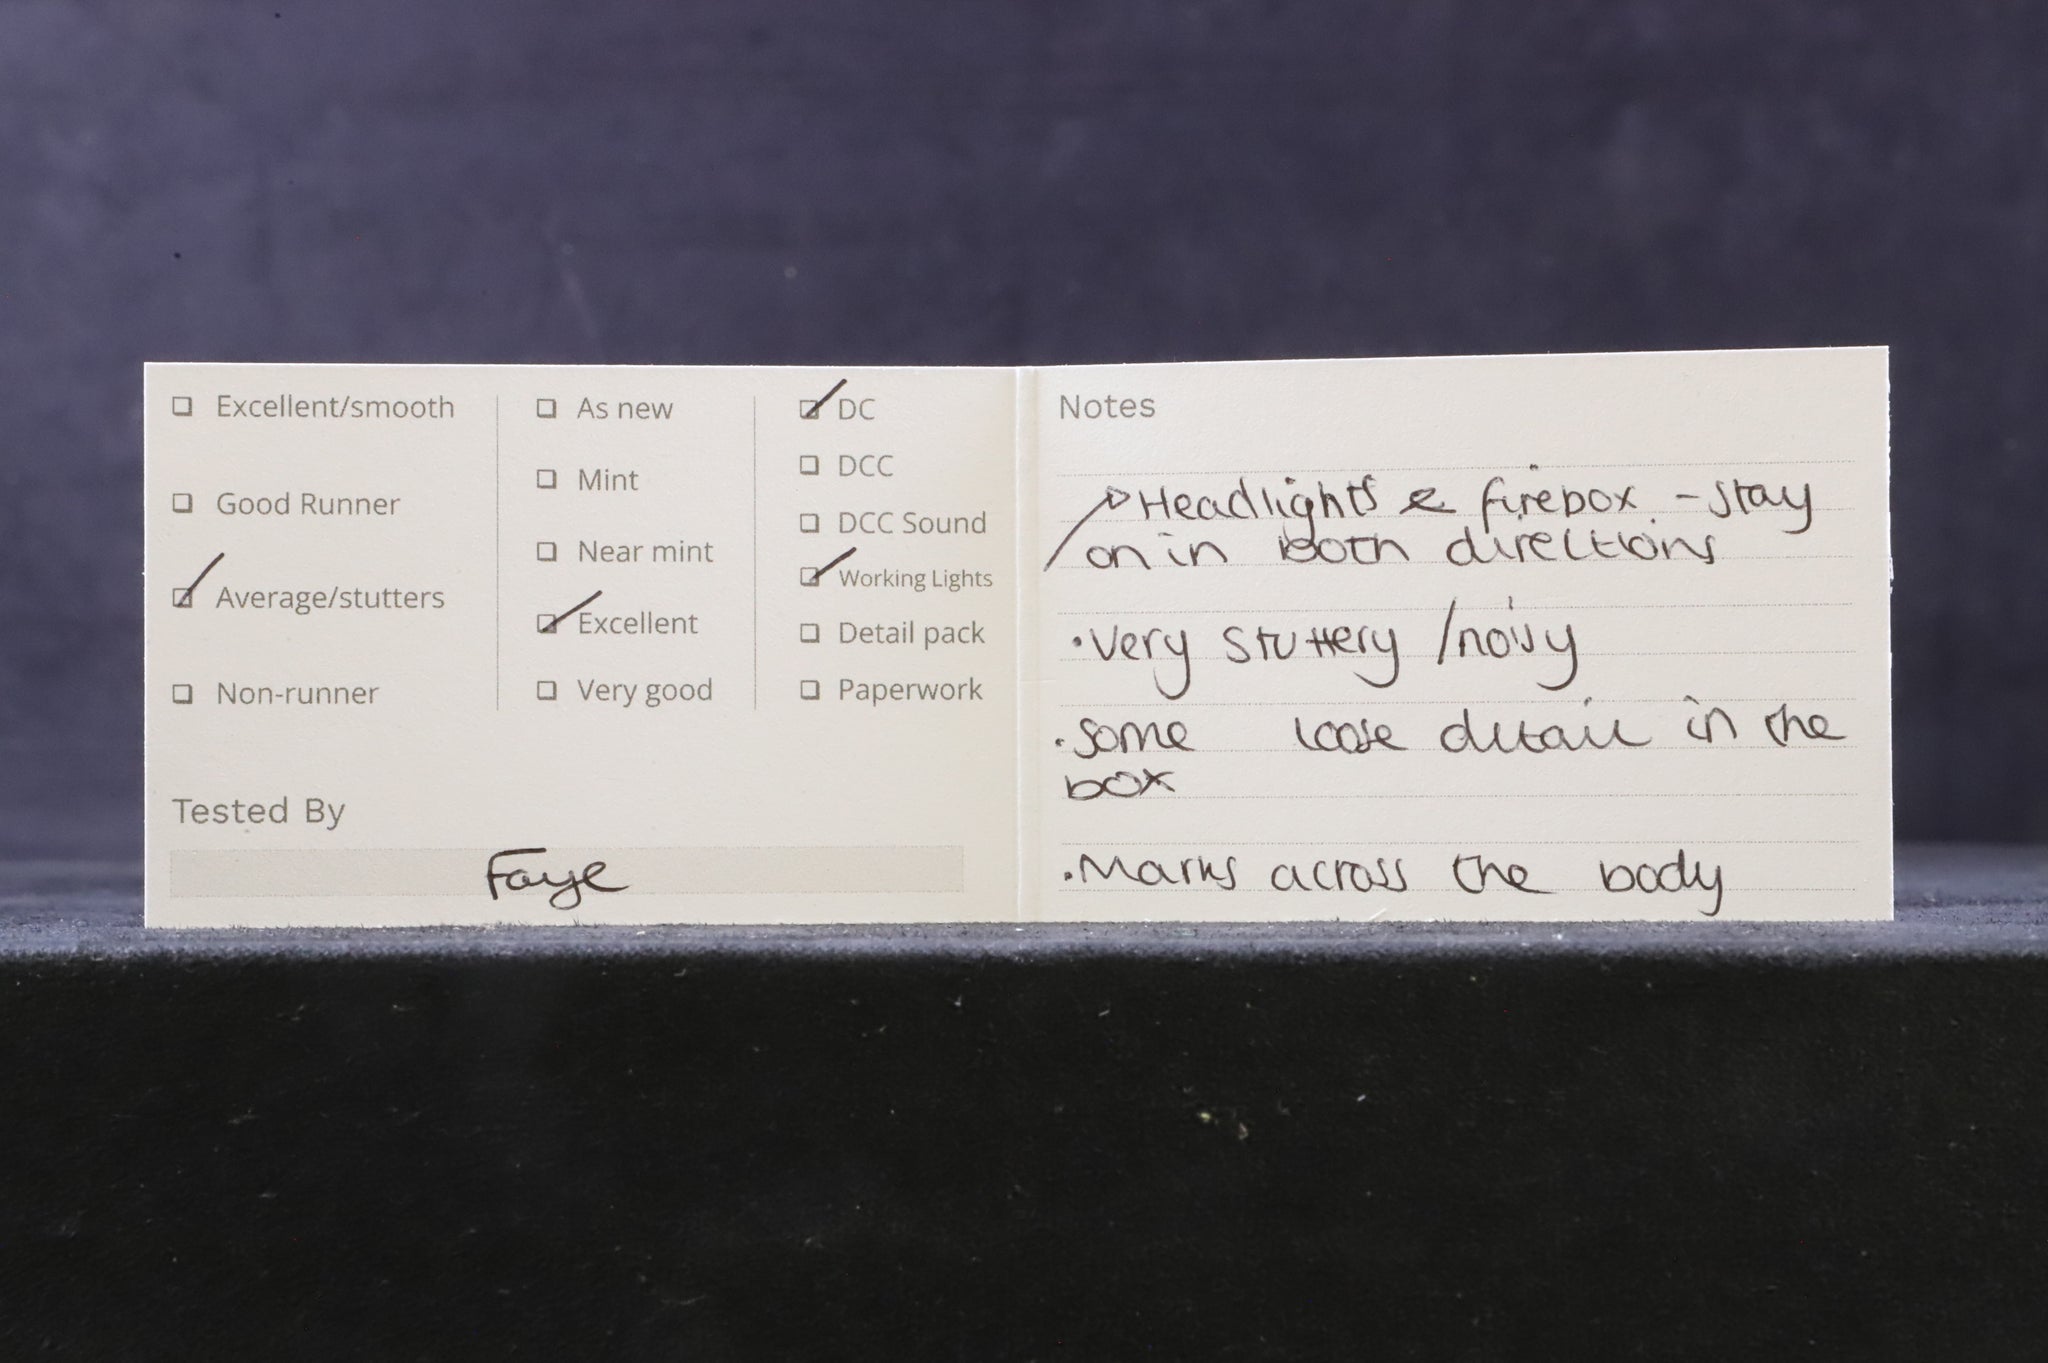 Excellent/smooth
Good Runner
Average/stutters
Non-runner
As new
Mint
Near mint
Excellent
Very good
DC
DCC
DCC Sound
Working Lights
Detail pack
Paperwork
Tested By
Faye
Notes
Headlights & firebox - stay
on in both directions
• Very stuttery /noisy
• Some loose detail in the
box
• Marks across the body